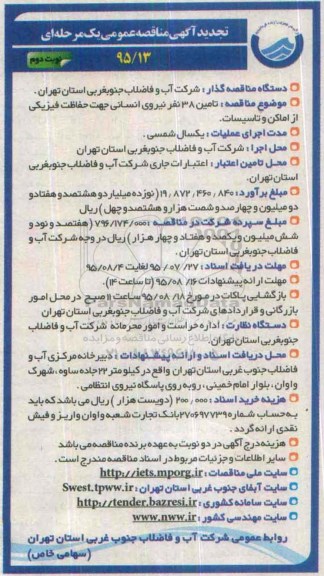 تجدید آگهی مناقصه عمومی یک مرحله‌ای
۹۵/۱۳
نوبت دوم
دستگاه مناقصه گذار : شرکت آب و فاضلاب جنوبغربی استان تهران .
موضوع مناقصه : تامین ۳۸ نفر نیروی انسانی جهت حفاظت فیزیکی
از اماکن و تاسیسات.
مدت اجرای عملیات : یکسال شمسی .
محل اجرا : شرکت آب و فاضلاب جنوبغربی استان تهران
محل تامین اعتبار : اعتبارات جاری شرکت آب و فاضلاب جنوبغربی
استان تهران.
مبلغ برآورد : ۸۴۰ , ۴۶۰ , ۸۷۲ , ۱۹ (نوزده میلیارد و هشتصد و هفتاد و
دو میلیون و چهارصد و شصت هزار و هشتصد و چهل) ریال
مبلغ سپرده شرکت در مناقصه : ۷۹۴/۱۷۴/۰۰۰ (هفتصد و نود و
شش میلیون و یکصد و هفتاد و چهار هزار) ریال در وجه شرکت آب و
فاضلاب جنوبغربی استان تهران.
مهلت دریافت اسناد : ۲۷/ ۰۷ / ۹۵ لغایت ۹۵/۰۸/۴
مهلت ارائه پیشنهادات ۱۶/ ۹۵/۰۸ (تا ساعت ۱۴).
بازگشایی پاکات در مورخ ۱۸/ ۰۸ /۹۵ ساعت ۱۱ صبح در محل امور
بازرگانی و قراردادهای شرکت آب و فاضلاب جنوبغربی استان تهران
دستگاه نظارت : اداره حراست و امور محرمانه شرکت آب و فاضلاب
جنوبغربی استان تهران.
محل دریافت اسناد و ارائه پیشنهادات : دبیرخانه مرکزی آب و
فاضلاب جنوب غربی استان تهران واقع در کیلومتر ۲۲ جاده ساوه ، شهرک
واوان ، بلوار امام خمینی ، روبه روی پاسگاه نیروی انتظامی .
هزینه خرید اسناد : ۲۰۰,۰۰۰ (دویست هزار ) ریال می باشد که باید
به حساب شماره ۲۷۰۶۹۷۷۳۹ بانک تجارت شعبه واوان واریز و فیش
نقدی ارائه گردد .
هزینه درج آگهی در دو نوبت به عهده برنده مناقصه می باشد
سایر اطلاعات و جزئیات مربوط در اسناد مناقصه مندرج است .
سایت ملی مناقصات : http://iets.mporg.ir
سایت آبفای جنوب غربی استان تهران : Swest.tpww.ir
سایت سامانه کشوری : http://tender.bazresi.ir
سایت مهندسی کشور : www.nww.ir
روابط عمومی شرکت آب و فاضلاب جنوب غربی استان تهران
(سهامی خاص)